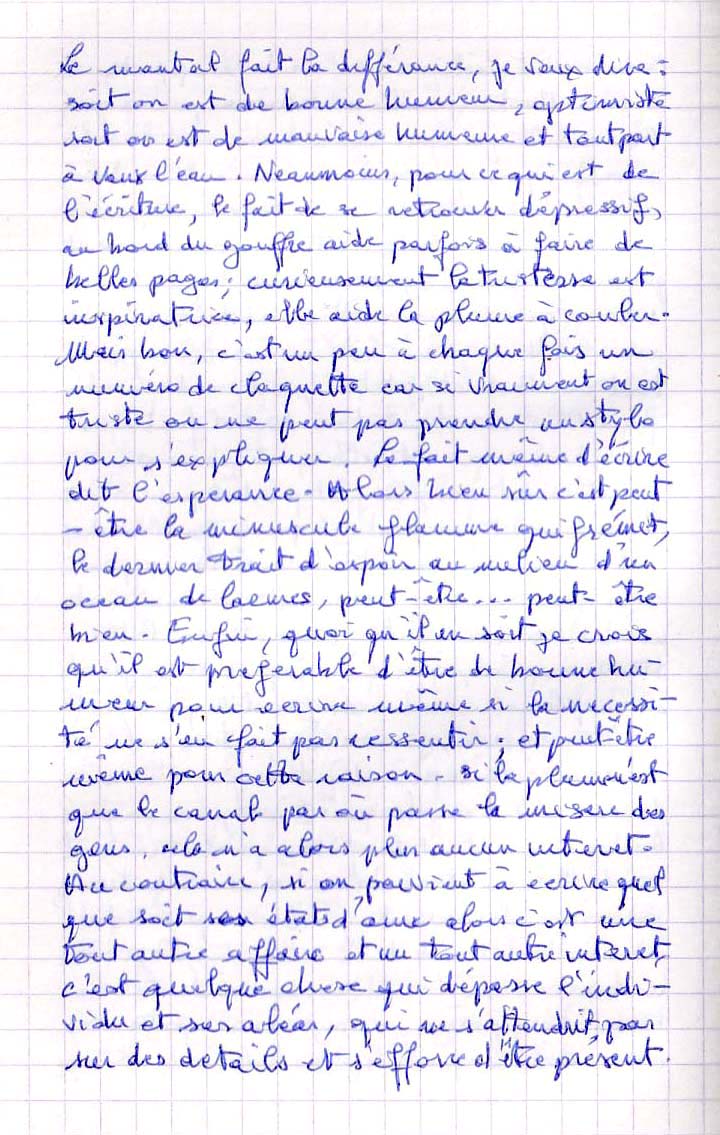 Le mental fait la différance, je veux dire :
soit on est de bonne humeur, optimiste
soit on est de mauvaise humeure et tout part
à vaux l'eau. Neanmoins, pour ce qui est de
l'écriture, le fait de se retrouver dépressif,
au bord du gouffre aide parfois à faire de
belles pages; curieusement la tristesse est
inspiratrice, elle aide la plume à couler.
Mais bon, c'est un peu à chaque fois un
numéro de claquette car si vraiment on est
triste on ne peut pas prendre un stylo
pour s'expliquer. Le fait même d'écrire
dit l'espérance. Alors bien sûr c'est peut
-être la minuscule flamme qui frémet,
le dernier trait d'espoir au milieu d'un
ocean de larmes, peut-être... peut-être
bien. Enfin, quoi qu'il en soit je crois
qu'il est preferable d'être de bonne hu-
meur pour ecrire même si la necessi-
té ne s'en fait pas ressentir; et peut-être
même pour cette raison. si la plume n'est
que le canal par où passe la misere des
gens, cela n'a alors plus aucun interet.
Au contraire, si on parvient à ecrire quel
que soit ses états d'ame alors c'est une
tout autre affaire et un tout autre interet,
c'est quelque chose qui dépasse l'indi-
vidu et ses aléas, qui ne s'attendrit pas
sur des details et s'efforce d'être présent.